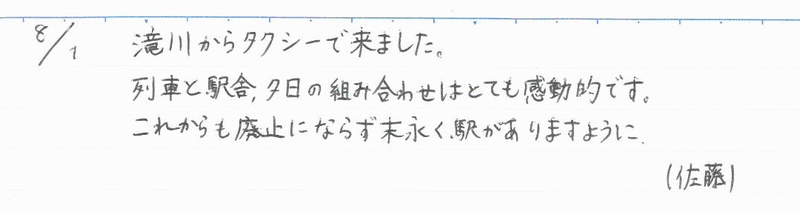 8/1 滝川からタクシーで来ました。
列車と駅舎,夕日の組み合わせはとても感動的です。
これからも廃止にならず末永く駅がありますように.
(佐藤)